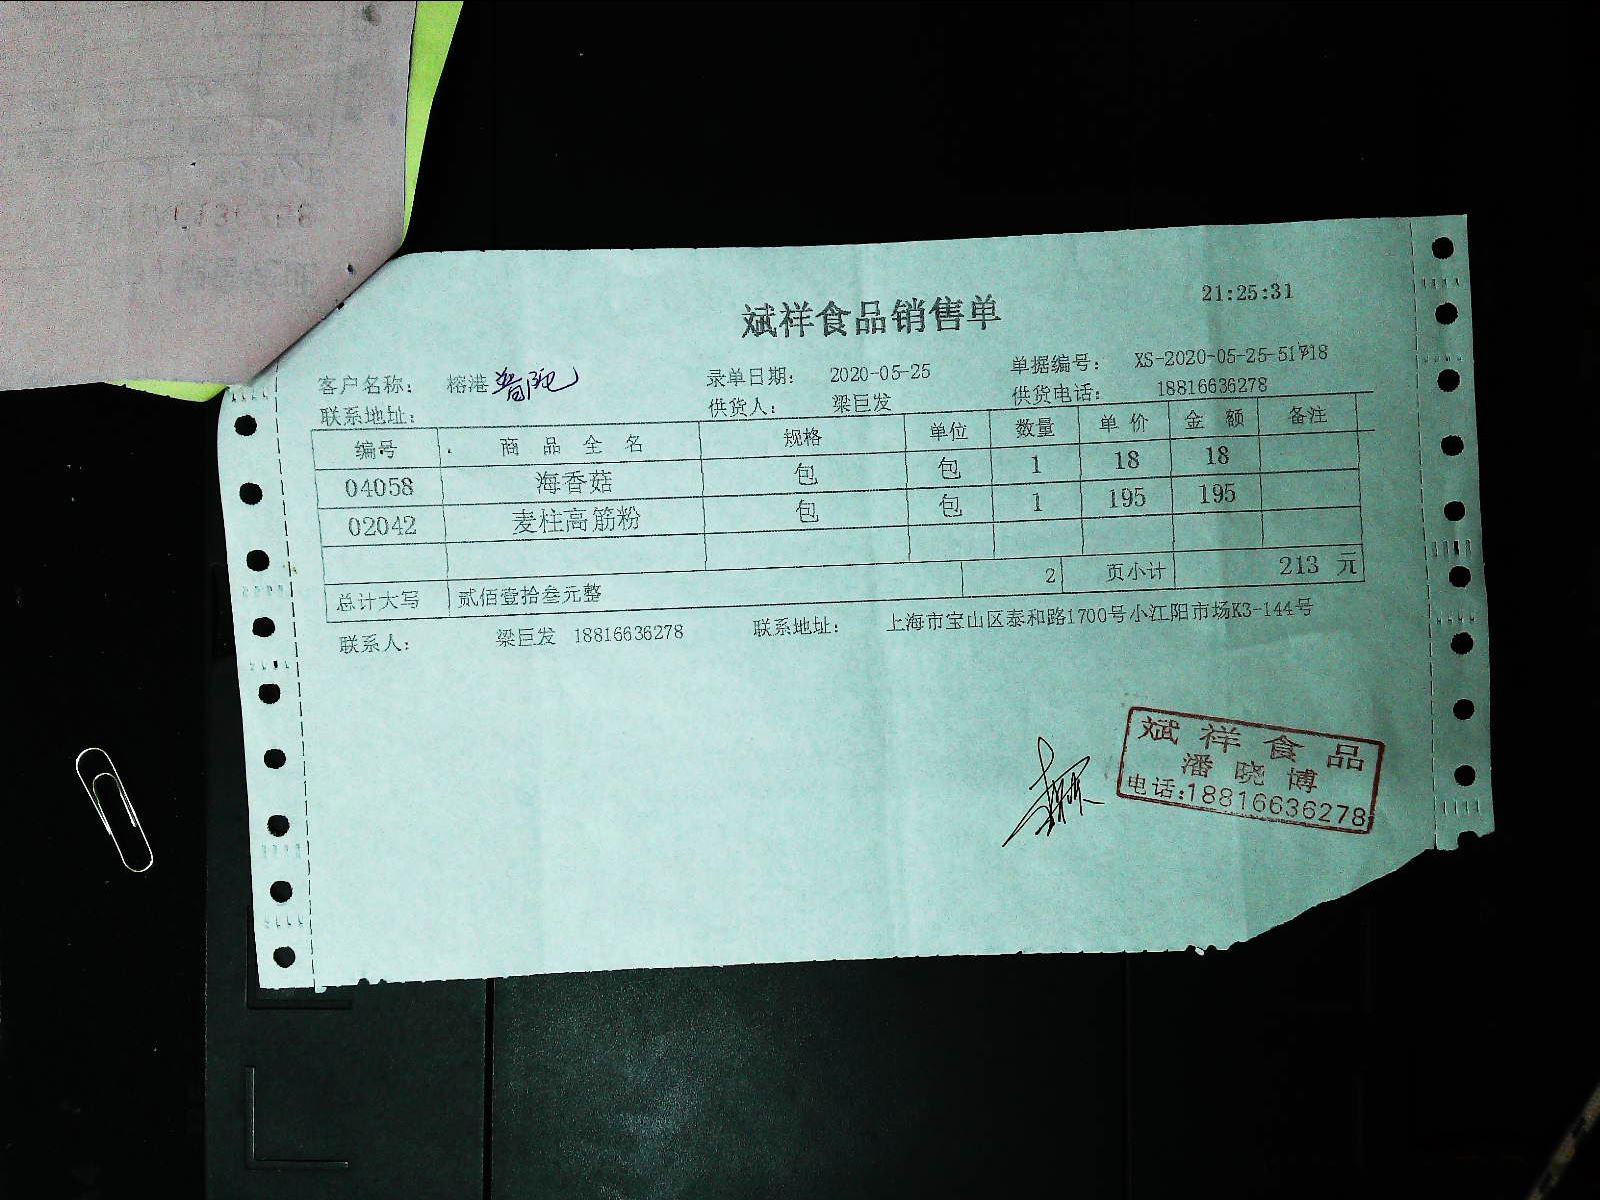 21:25:31
斌祥食品销售单
客户名称： 榕港 录单日期： 2020-05-25 单据编号： XS-2020-05-25-51718
联系地址： 供货人： 梁巨发 供货电话： 18816636278
编号 商品全名 规格 单位 数量 单价 金额 备注
04058 海香菇 包 包 1 18 18
02042 麦柱高筋粉 包 包 1 195 195
总计大写 贰佰壹拾叁元整 2 页小计 213 元
联系人： 梁巨发 18816636278 联系地址： 上海市宝山区泰和路1700号小江阳市场K3-144号
斌祥食品
潘晓博
电话:18816636278